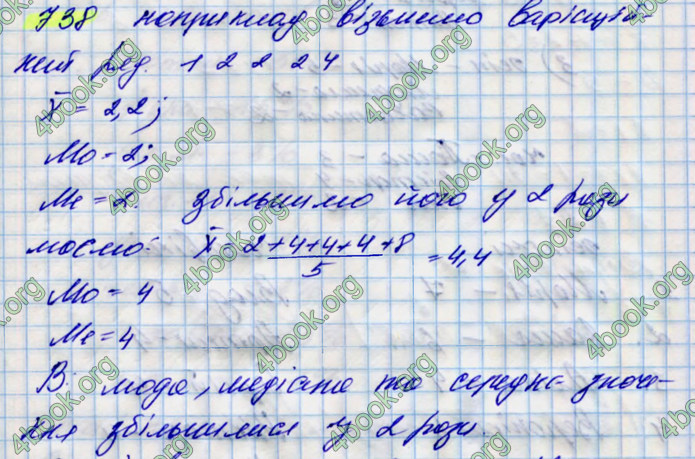 738 наприклад візьмемо варіацій-
ний ряд. 1 2 2 2 4
x̄ = 2,2;
Mo = 2;
Me = 2. збільшимо його у 2 рази
маємо: x̄ = 2+4+4+4+8 / 5 = 4,4
Mo = 4
Me = 4
В: мода, медіана та середнє значе-
ння збільшилися у 2 рази.
4book.org